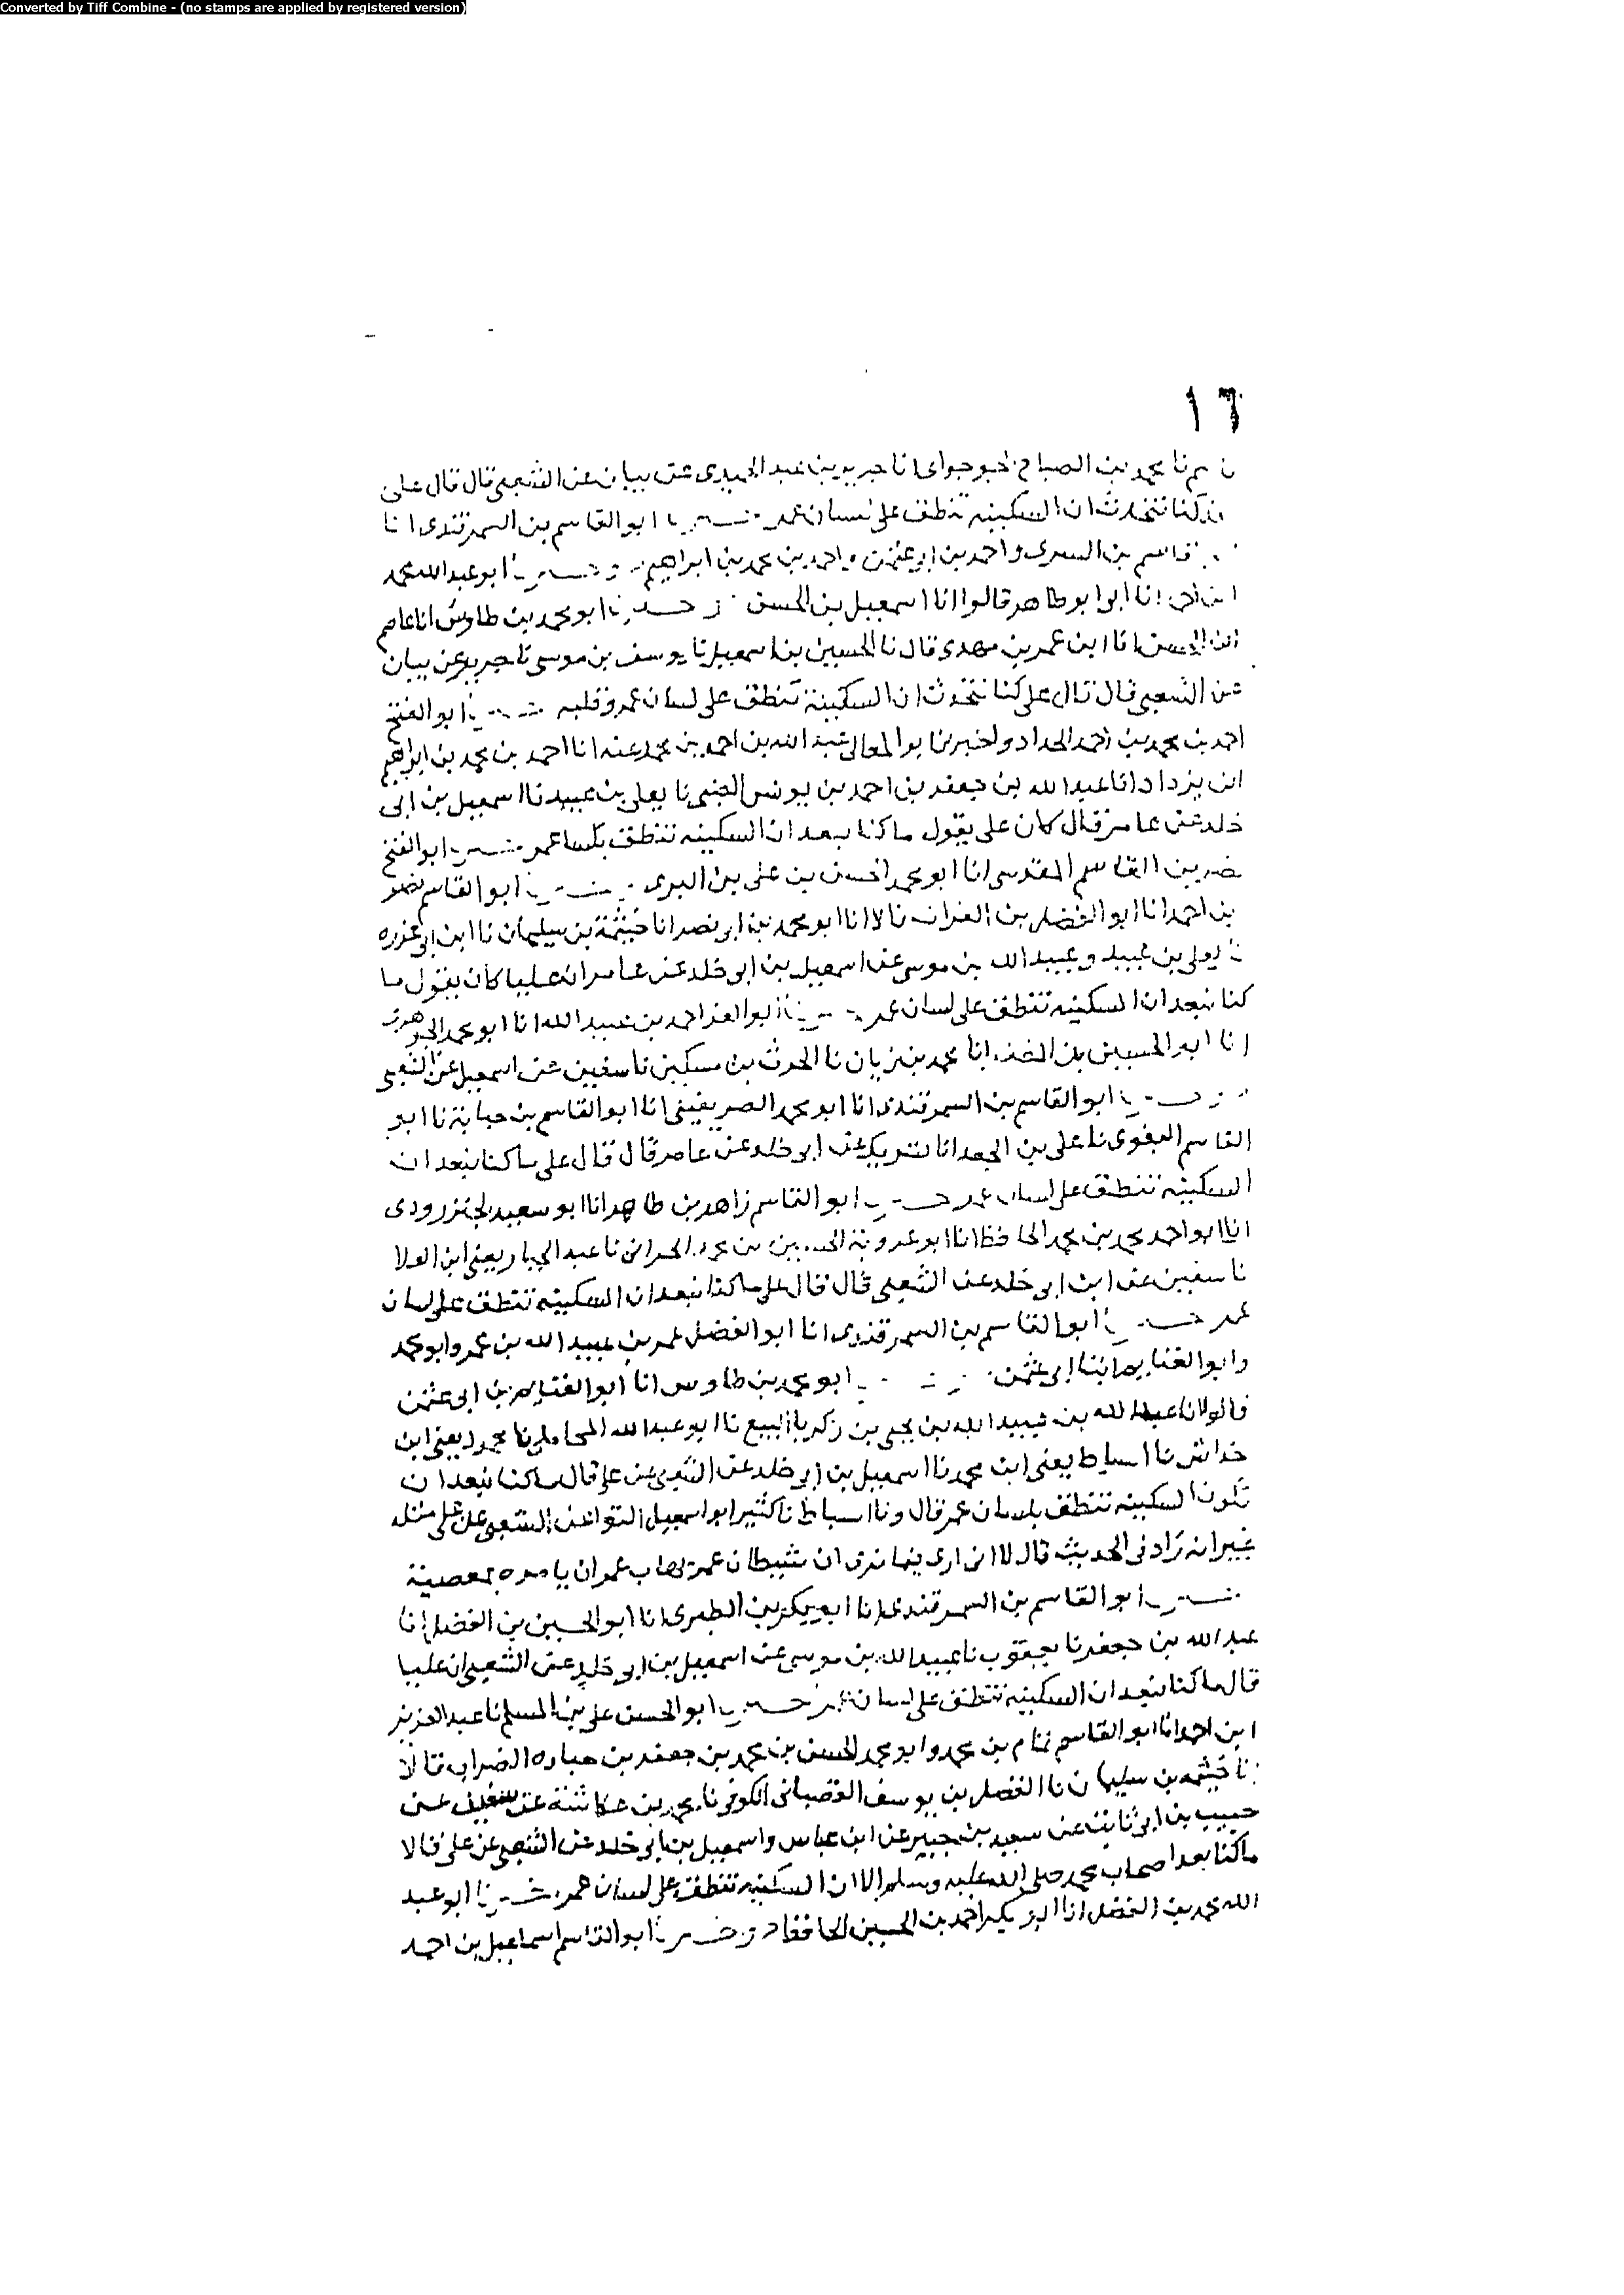 Converted by Tiff Combine - (no stamps are applied by registered version)
١٦
نا محمد بن الصباح نا جرير بن عبد الحميد عن بيان عن الشعبي قال قال على
كنا نتحدث ان السكينه تنطق على لسان عمر ابو القاسم بن السمرقندى انا
قاسم بن السرى واحمد بن ابى عثمن واحمد بن محمد بن ابراهيم ابو عبد الله محمد
انا ابو طاهر قالوا انا اسمعيل بن الحسن ابو محمد بن طاوس انا عاصم
ابن الحسن انا ابن عمر بن مهدى قال نا الحسين بن اسمعيل نا يوسف بن موسى نا جرير عن بيان
عن الشعبي قال قال على كنا نتحدث ان السكينة تنطق على لسان عمر وقلبه ابو الفتح
احمد بن محمد بن احمد الحداد واخبرنا ابو المعالى عبد الله بن احمد بن محمد عنه انا احمد بن محمد بن ابراهيم
ابن يزداد انا عبد الله بن جعفر بن احمد نا يعلى بن عبيد نا اسمعيل بن ابى
خلد عن عامر قال كان على يقول ما كنا نبعد ان السكينه تنطق عمر ابو الفتح
نصر بن القاسم المقدسى انا ابو محمد بن على بن البرى ابو القاسم نصر
بن احمد انا ابو الفضل بن الفرات قالا انا ابو محمد بن ابى نصر انا خيثمة بن سليمان نا ابن ابى غرزه
نا يعلى بن عبيد وعبيد الله بن موسى عن اسمعيل بن ابى خلد عن عامر ان عليا كان يقول ما
كنا نبعد ان السكينه تنطق على لسان عمر ابو العز احمد بن عبيد الله انا ابو محمد الجوهرى
انا ابو الحسين بن المظفر انا محمد بن زبان نا الحرث بن مسكين نا سفين عن اسمعيل عن الشعبى
ابو القاسم بن السمرقندى انا ابو محمد الصريفينى انا ابو القاسم بن حبابة نا ابو
القاسم البغوى نا على بن الجعد انا شريك عن ابى خلد عن عامر قال قال على ما كنا نبعد ان
السكينه تنطق على لسان عمر ابو القاسم زاهر بن طاهر انا ابو سعيد الجنزرودى
انا ابو احمد محمد بن محمد الحافظ انا ابو عروبة الحسين بن محمد الحرانى نا عبد الجبار يعنى ابن العلا
نا سفين عن ابن ابى خلد عن الشعبى قال قال على ما كنا نبعد ان السكينه تنطق على لسان
عمر ابو القاسم بن السمرقندى انا ابو الفضل عمر بن عبيد الله بن عمر وابو محمد
وابو الغنايم ابنا ابى عثمن ابو محمد بن طاوس انا ابو الغنايم بن ابى عثمن
قالوا انا عبد الله بن عبيد الله بن يحيى بن زكريا البيع نا ابو عبد الله المحاملى نا محمود يعنى ابن
خداش نا اسباط يعنى ابن محمد نا اسمعيل بن ابى خلد عن الشعبى عن على قال ما كنا نبعد ان
تكون السكينه تنطق بلسان عمر قال ونا اسباط نا كثير ابو اسمعيل النوا عن الشعبى عن على مثله
غير انه زاد فى الحديث قال لا ان ارى فيما نرى ان شيطان عمر يهاب عمر ان يامره بمعصية
ابو القاسم بن السمرقندى انا ابو بكر بن الطبرى انا ابو الحسين بن الفضل انا
عبد الله بن جعفر نا يعقوب نا عبيد الله بن موسى عن اسمعيل بن ابى خلد عن الشعبى ان عليا
قال ما كنا نبعد ان السكينه تنطق على لسان عمر ابو الحسن على بن المسلم نا عبد العزيز
ابن احمد انا ابو القاسم تمام بن محمد وابو محمد الحسن بن محمد بن جعفر بن حباره الضراب قالا
نا خيثمه بن سليمان نا الفضل بن يوسف القصبانى الكوفى نا محمد بن عكاشة عن عن
حبيب بن ابى ثابت عن سعيد بن جبير عن ابن عباس واسمعيل بن ابى خلد عن الشعبى عن على قالا
ما كنا نعد اصحاب محمد صلى الله عليه وسلم الا ان السكينه تنطق على لسان عمر ابو عبد
الله محمد بن الفضل انا ابو بكر احمد بن الحسين الحافظ ابو القاسم اسماعيل بن احمد